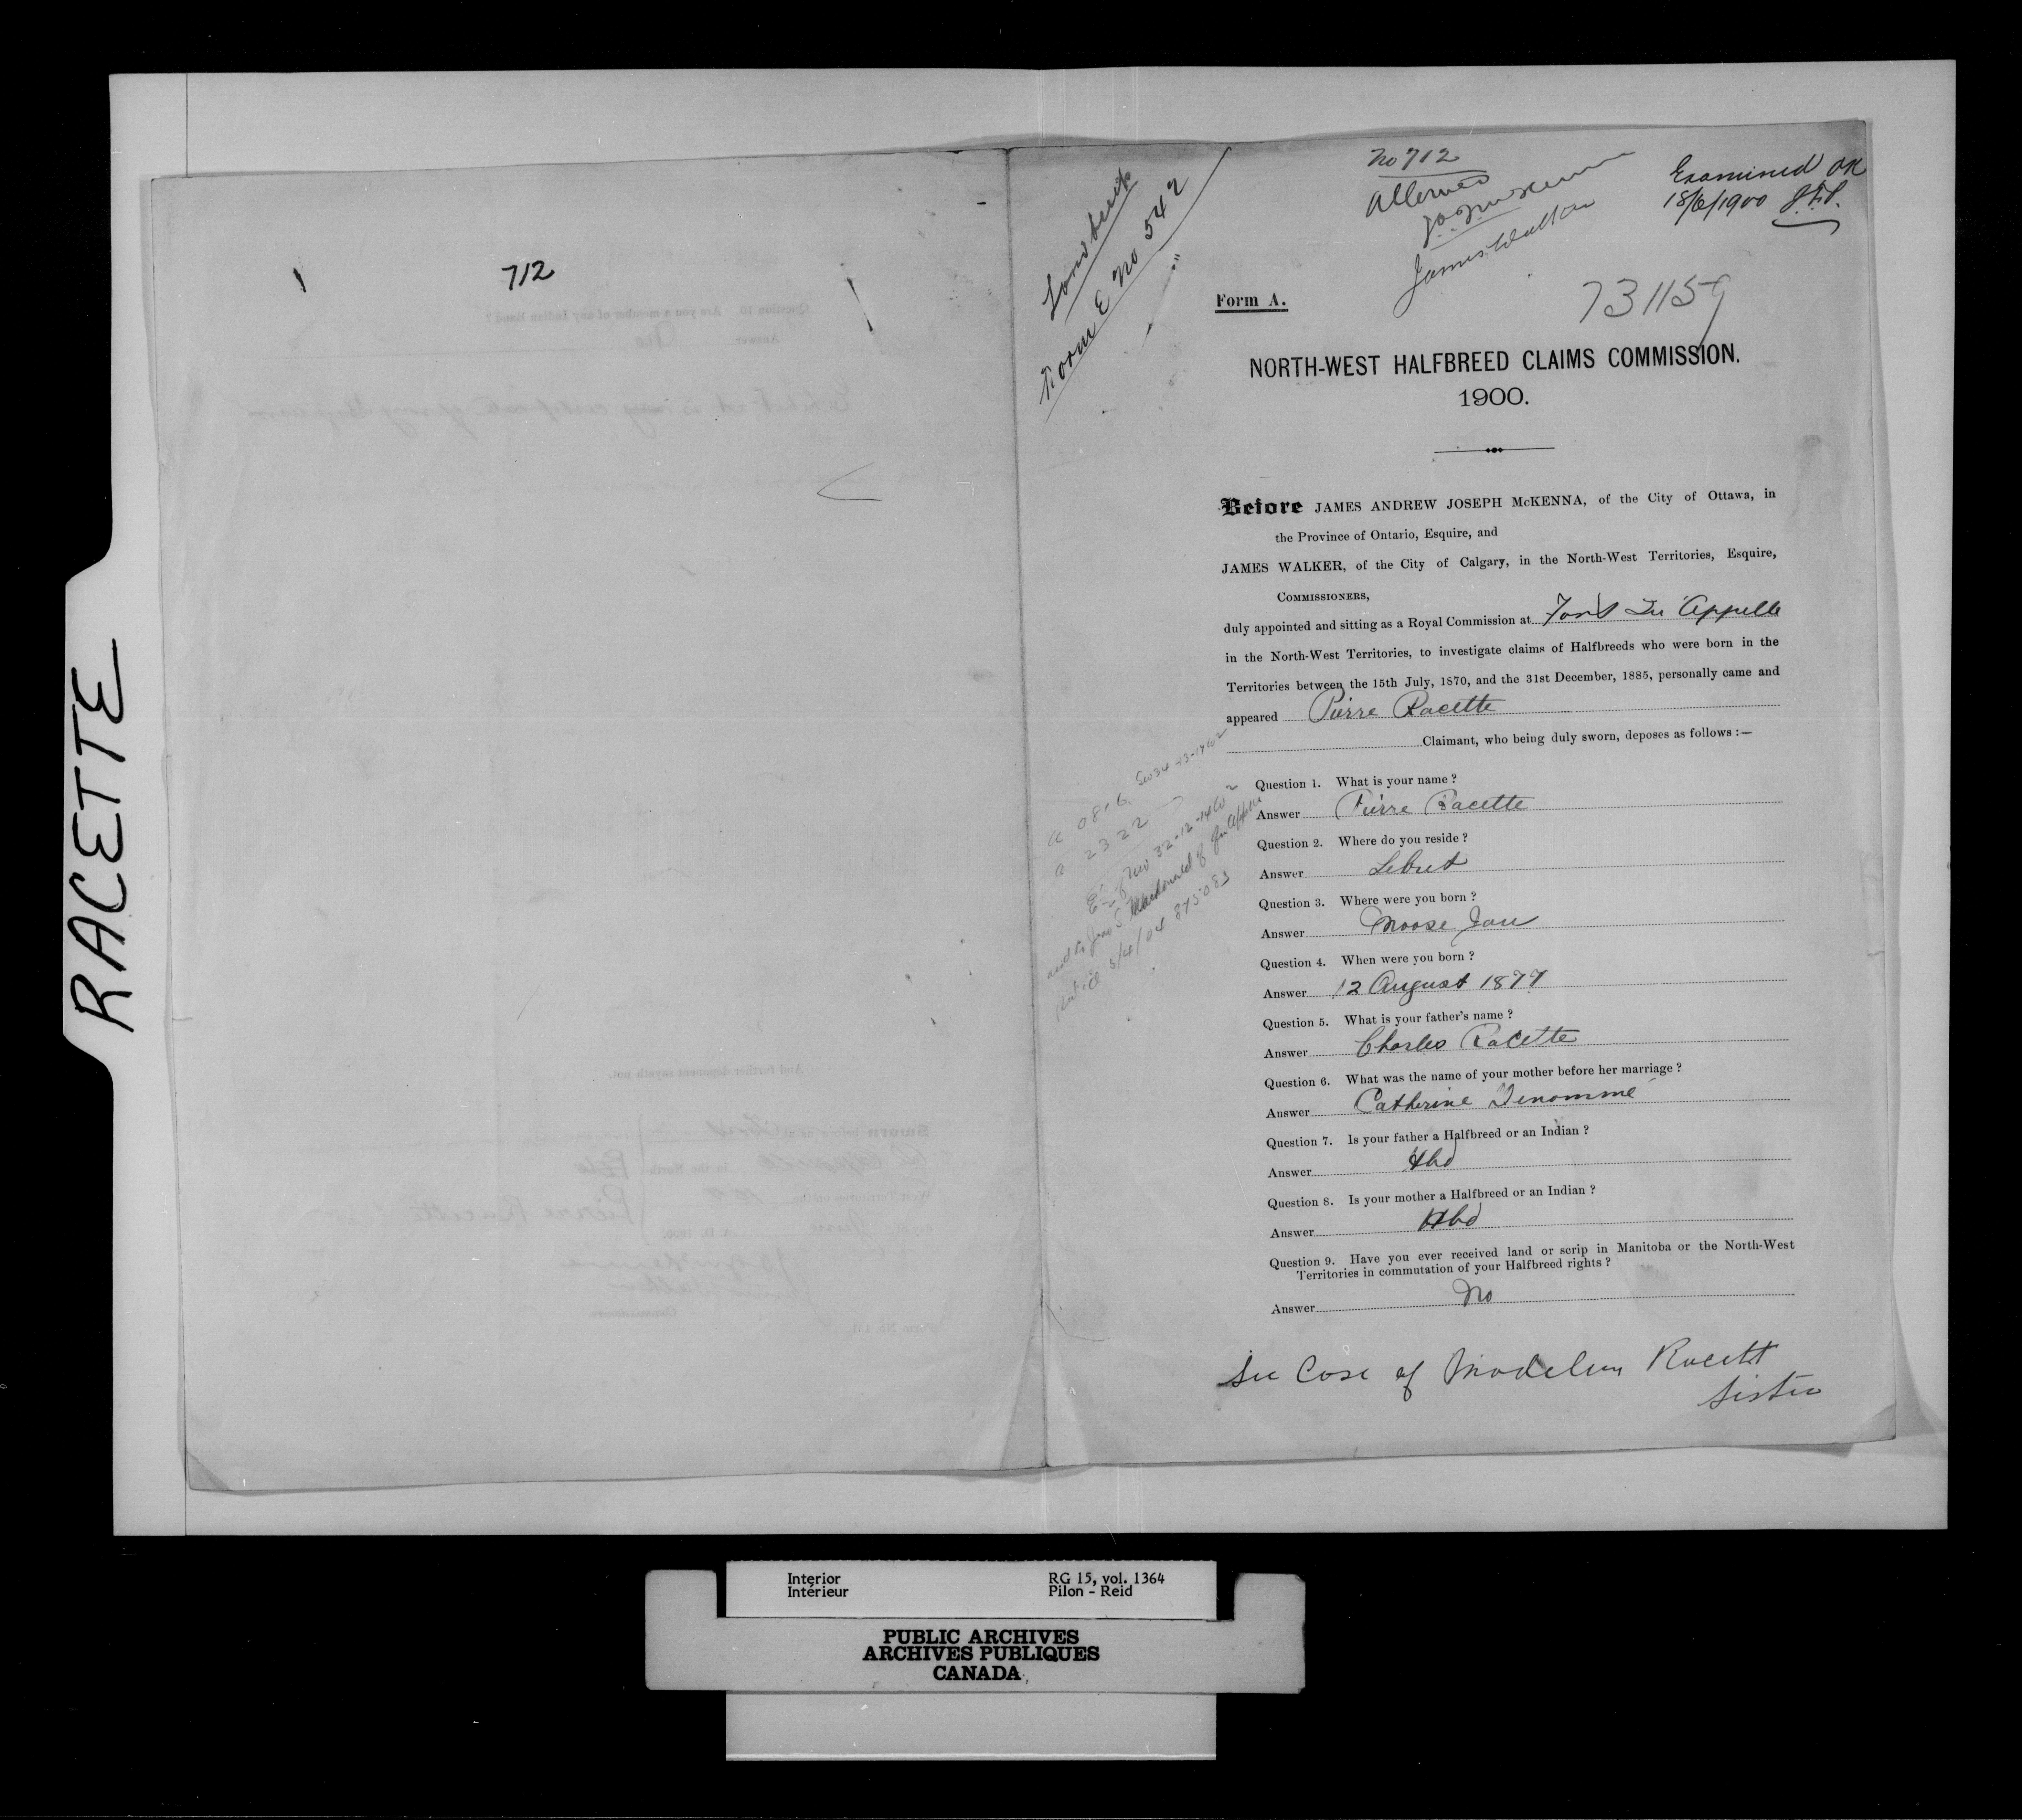 RACETTE
712
Land Scrip
Form E No 542
No 712
Allowed
J.A.J. McKenna
James Walker
Examined OK
18/6/1900
731159
Form A.
NORTH-WEST HALFBREED CLAIMS COMMISSION.
1900.
Before JAMES ANDREW JOSEPH McKENNA, of the City of Ottawa, in
the Province of Ontario, Esquire, and
JAMES WALKER, of the City of Calgary, in the North-West Territories, Esquire,
COMMISSIONERS,
duly appointed and sitting as a Royal Commission at Fort Qu'Appelle
in the North-West Territories, to investigate claims of Halfbreeds who were born in the
Territories between the 15th July, 1870, and the 31st December, 1885, personally came and
appeared Pierre Racette
Claimant, who being duly sworn, deposes as follows :—
Question 1. What is your name ?
Answer Pierre Racette
Question 2. Where do you reside ?
Answer Lebret
Question 3. Where were you born ?
Answer Moose Jaw
Question 4. When were you born ?
Answer 12 August 1877
Question 5. What is your father's name ?
Answer Charles Racette
Question 6. What was the name of your mother before her marriage ?
Answer Catherine Denommé
Question 7. Is your father a Halfbreed or an Indian ?
Answer Hbd
Question 8. Is your mother a Halfbreed or an Indian ?
Answer Hbd
Question 9. Have you ever received land or scrip in Manitoba or the North-West
Territories in commutation of your Halfbreed rights ?
Answer No
See Case of Madeline Racett
Sister
a 2322
Interior
Intérieur
RG 15, vol. 1364
Pilon - Reid
PUBLIC ARCHIVES
ARCHIVES PUBLIQUES
CANADA